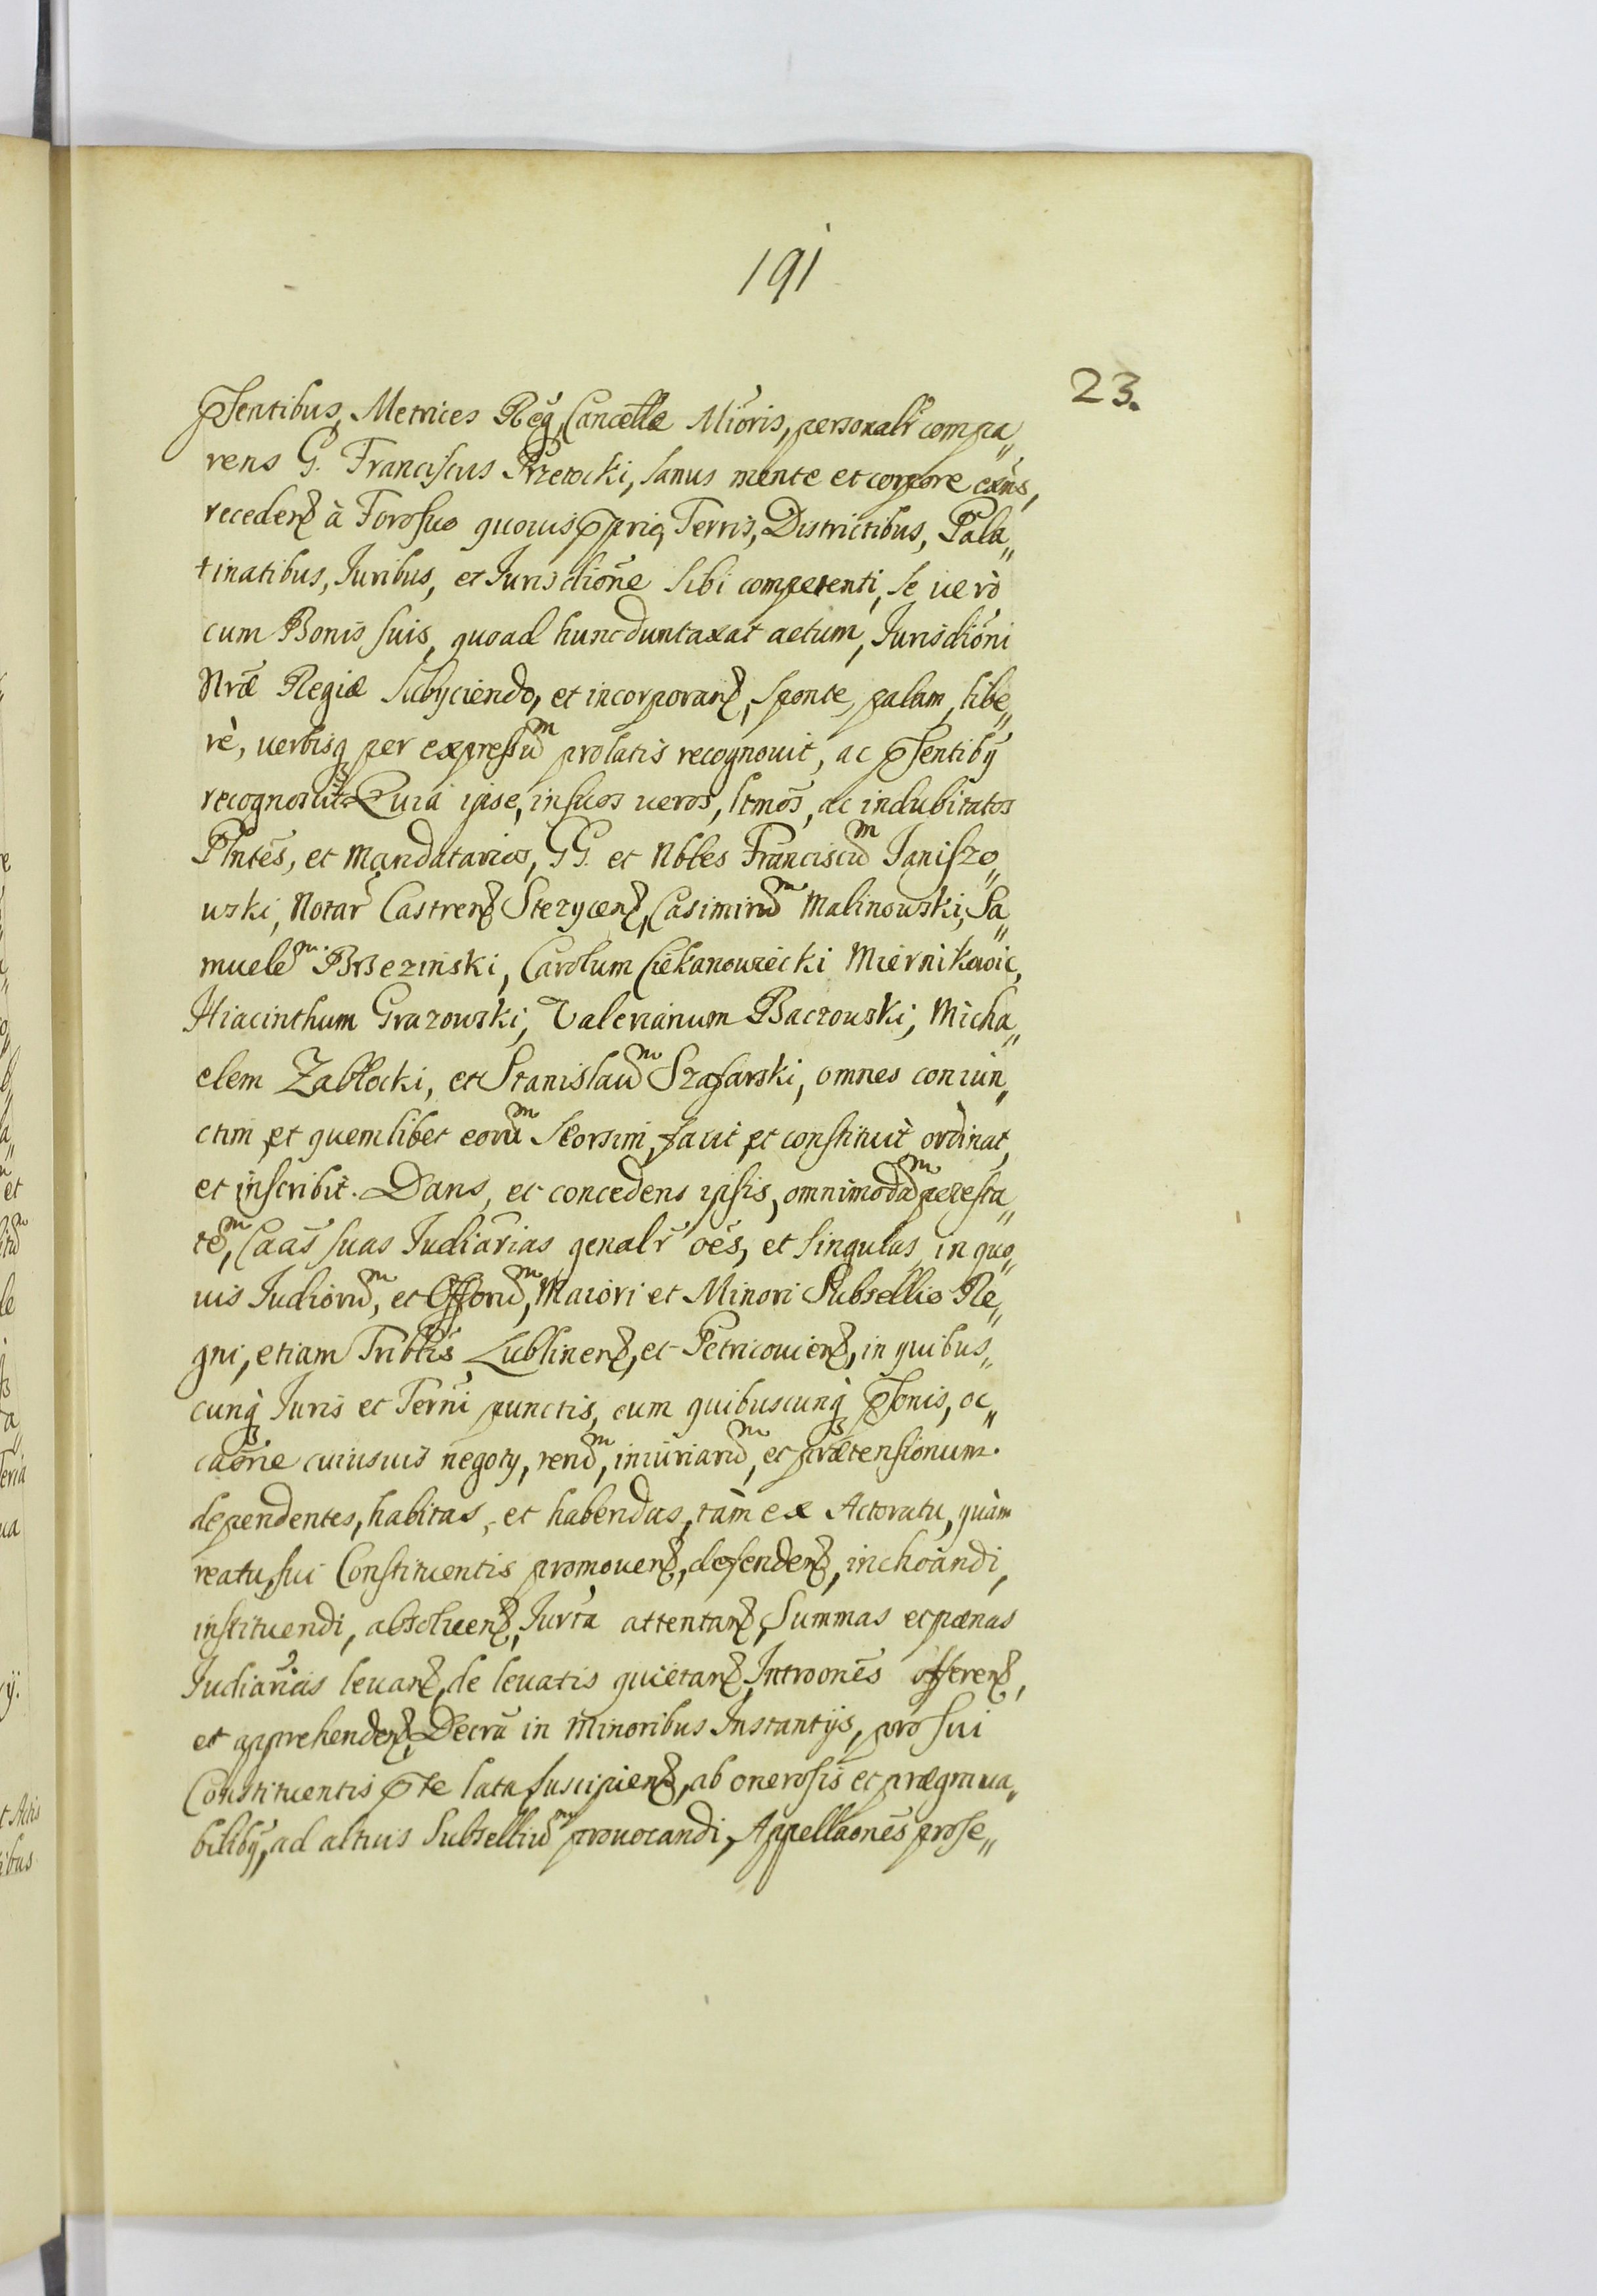 191
23.
Psentibus, Metrices Reg, Cancellæ Mioris, personalr compa„
rens G. Franciscus Przetocki, sanus mente et corpore exns,
receden à Foro suo quovis pprio, Terris, Districtibus, Pala„
tinatibus, Juribus, et Jurisdione sibi competenti, se uerò
cum Bonis suis, quoad hunc duntaxat actum, Jurisdioni
Nræ Regiæ subyciendo, et incorporan, sponte, palam, libe„
rè, uerbisq per expressum prolatis recognouit, ac psentiby
recognoscit. Quia ipse, in suos ueros, ltmos, ac indubitatos
Plntes, et Mandatarios, GG. et Nbles Franciscum Janiszo„
wski, Notar Castren Stezycen, Casimirum Malinowski, Sa„
muelem Brzezinski, Carolum Ciekanowiecki Miernikowic,
Hiacinthum Grazowski, Valerianum Baczowski, Micha„
elem Zabłocki, et Stanislaum Szafarski, omnes coniun„
ctim et quemlibet eorum seorsim, facit et constituit ordinat,
et inscribit. Dans, et concedens ipsis, omnimodam potesta„
tem, Caas suas Judiarias genalr oes, et singulas, in quo„
uis Judiorum, et Offorum, Maiori et Minori Subsellio Re„
gni, etiam Triblis Lublinen, et Petricouien, in quibus„
cunq Juris et Terni punctis, cum quibuscunq Psonis, oc„
caone cuiusuis negoty, rerum, iniuriarum, et prætensionum.
dependentes, habitas, et habendas, tàm ex Actoratu, quàm
reatu, sui Constituentis promouen, defenden, inchoandi,
instituendi, absoluen, Jurta attentan, Summas et pænas
Judiarias leuan, de leuatis quietan, Introones offeren,
et apprehenden, Decra in Minoribus Instantijs, pro sui
Constituentis pte lata suscipien, ab onerosis et prægraua„
biliby, ad altius Subsellium prouocandi, Appellaones prose„